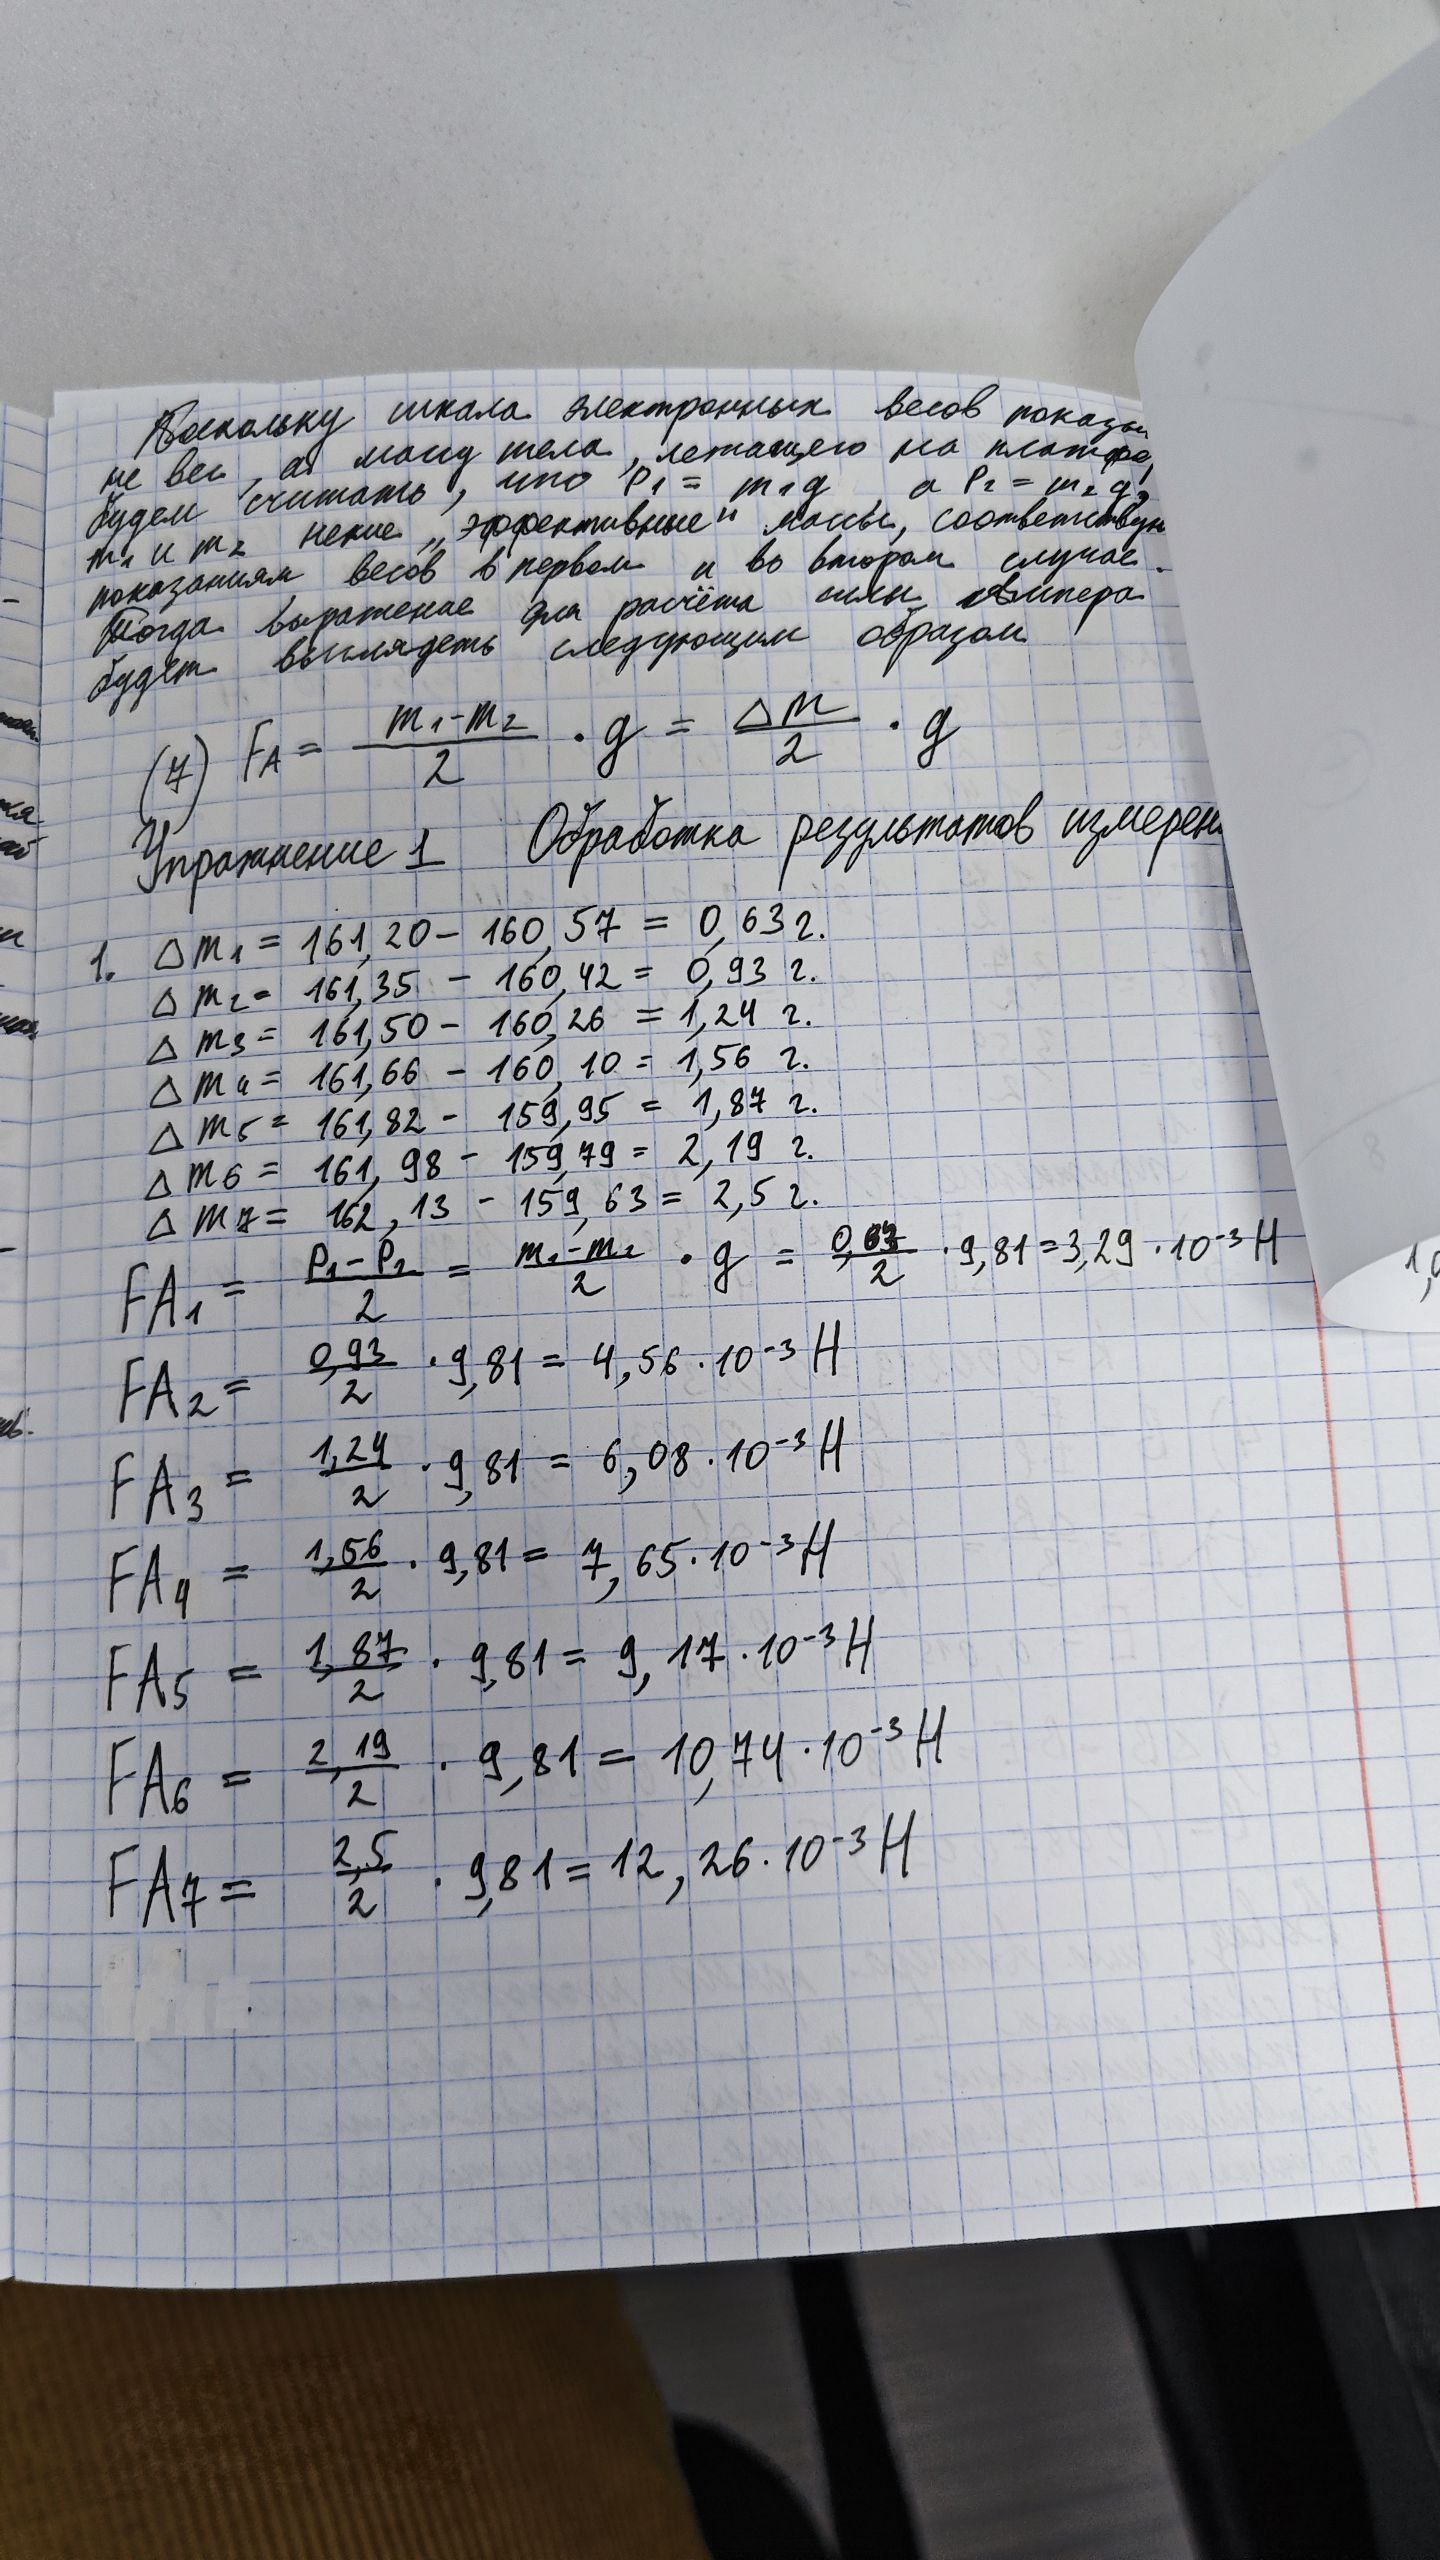 Поскольку шкала электронных весов показы
не вес, а массу тела, лежащего на платфо
будем считать, что P₁ = m₁g, а P₂ = m₂g,
m₁ и m₂ некие „эффективные" массы, соответствую
показаниям весов в первом и во втором случае.
Тогда выражение для расчёта силы Ампера
будет выглядеть следующим образом
(7) FA = (m₁-m₂)/2 · g = Δm/2 · g
Упражнение 1 Обработка результатов измерен
1. Δm₁ = 161,20 - 160,57 = 0,63 г.
Δm₂ = 161,35 - 160,42 = 0,93 г.
Δm₃ = 161,50 - 160,26 = 1,24 г.
Δm₄ = 161,66 - 160,10 = 1,56 г.
Δm₅ = 161,82 - 159,95 = 1,87 г.
Δm₆ = 161,98 - 159,79 = 2,19 г.
Δm₇ = 162,13 - 159,63 = 2,5 г.
FA₁ = (P₁-P₂)/2 = (m₁-m₂)/2 · g = 0,63/2 · 9,81 = 3,29 · 10⁻³ Н
FA₂ = 0,93/2 · 9,81 = 4,56 · 10⁻³ Н
FA₃ = 1,24/2 · 9,81 = 6,08 · 10⁻³ Н
FA₄ = 1,56/2 · 9,81 = 7,65 · 10⁻³ Н
FA₅ = 1,87/2 · 9,81 = 9,17 · 10⁻³ Н
FA₆ = 2,19/2 · 9,81 = 10,74 · 10⁻³ Н
FA₇ = 2,5/2 · 9,81 = 12,26 · 10⁻³ Н